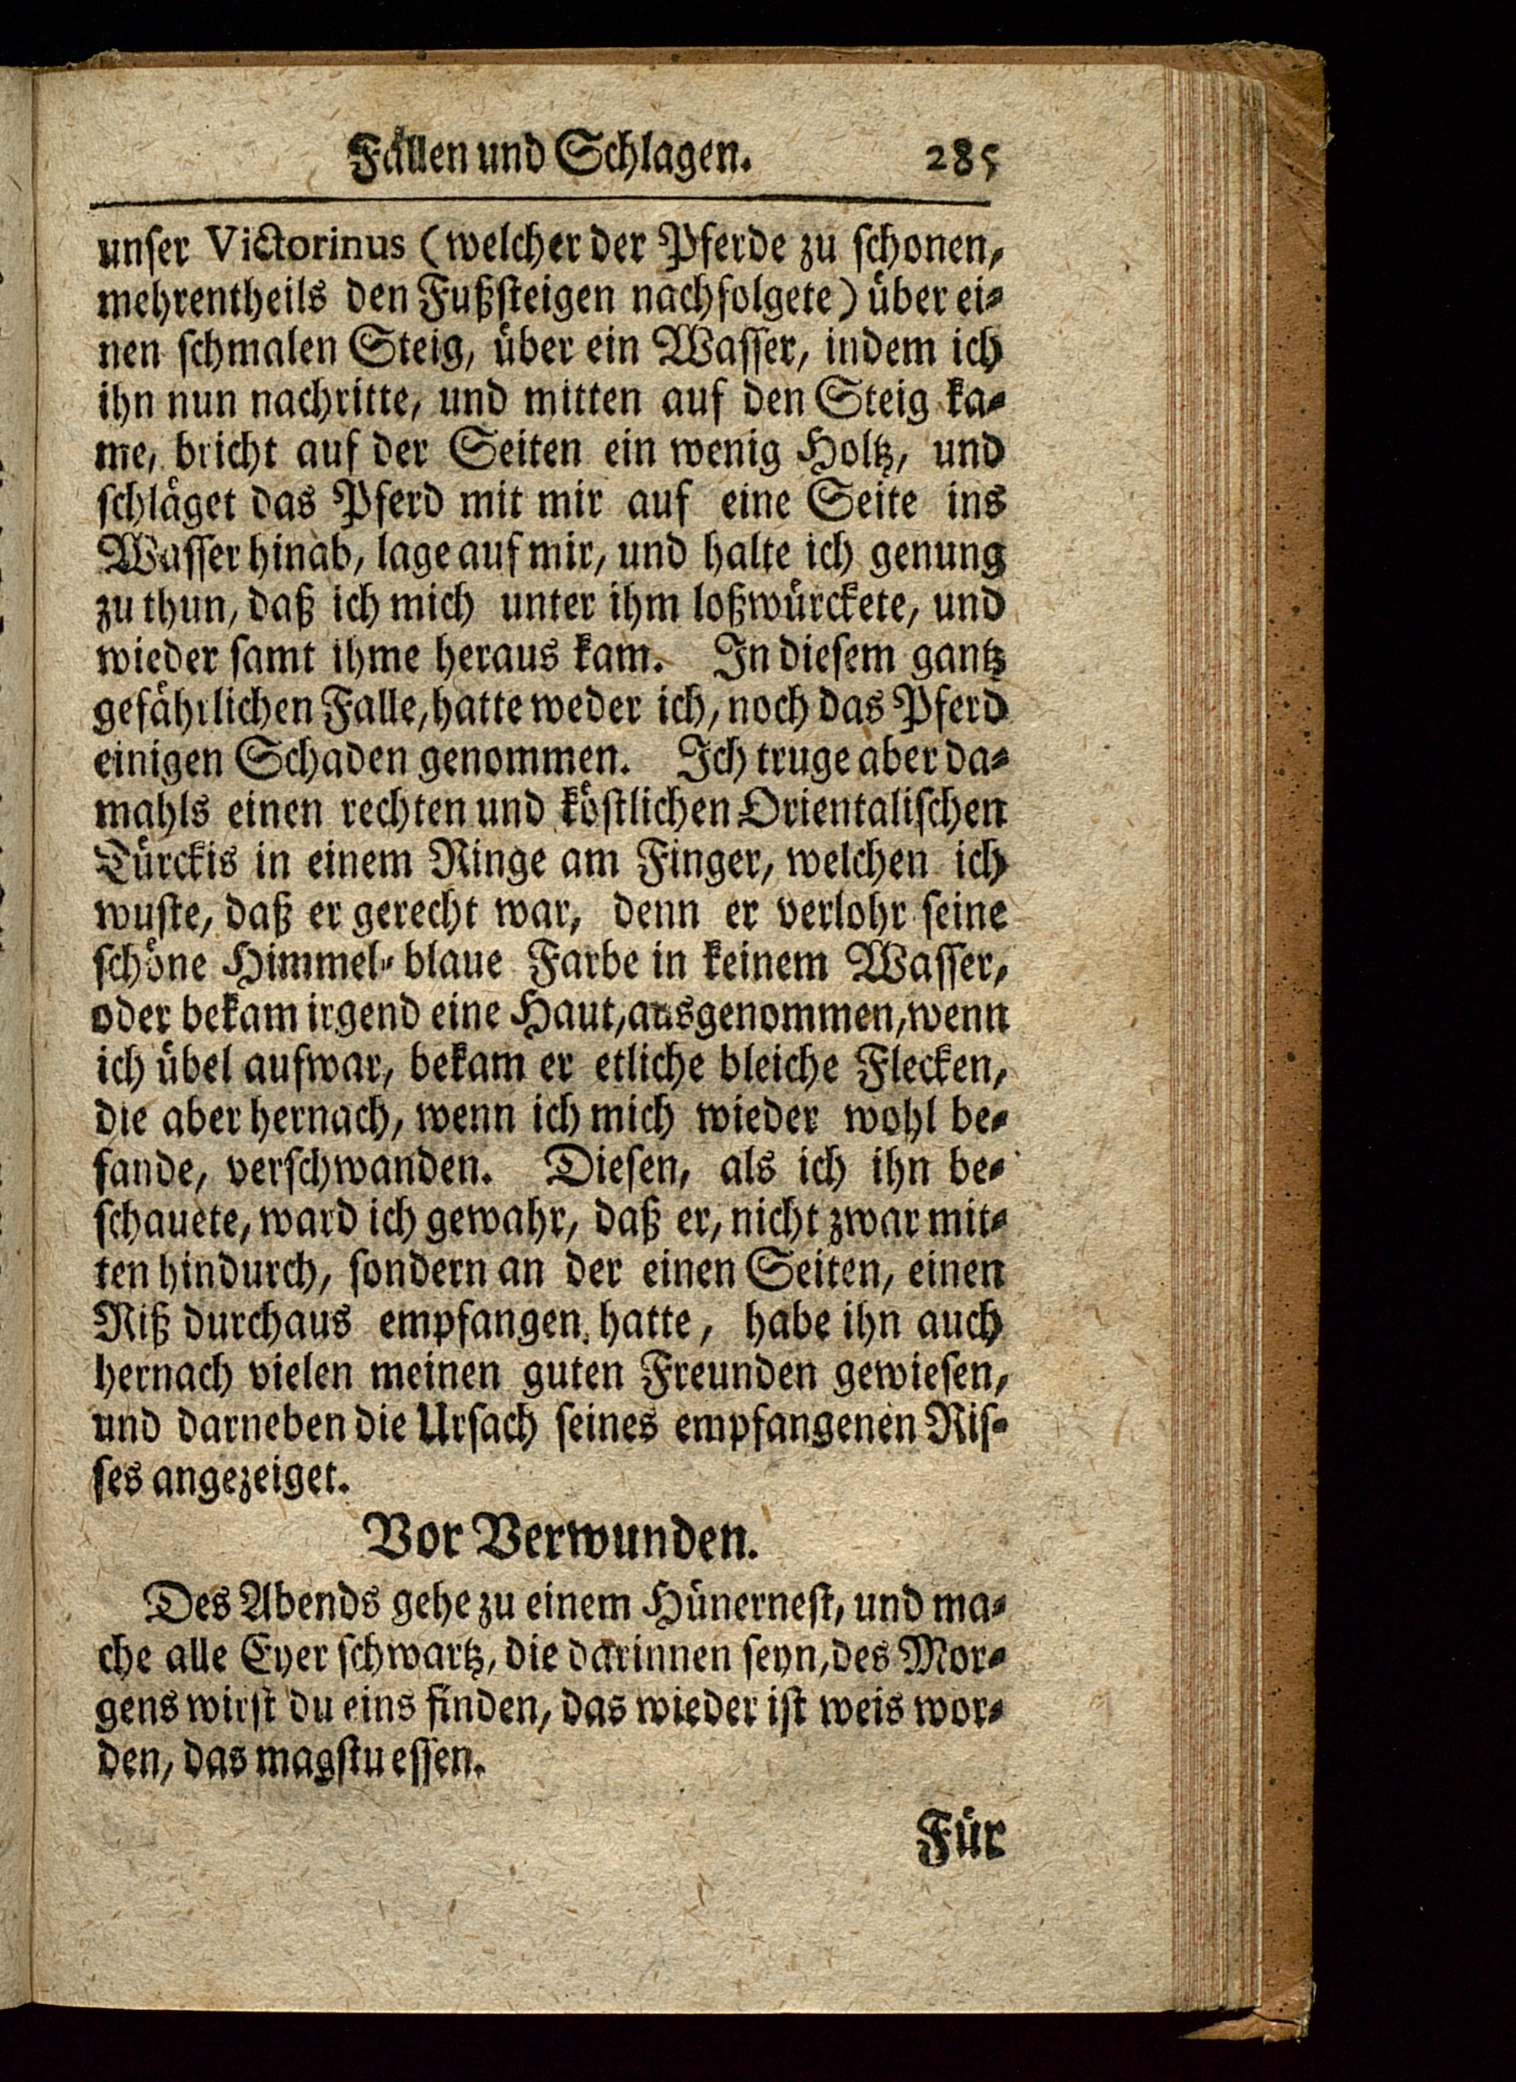 Fällen und Schlagen. 285
unser Victorinus (welcher der Pferde zu schonen,
mehrentheils den Fußsteigen nachfolgete) über ei-
nen schmalen Steig, über ein Wasser, indem ich
ihn nun nachritte, und mitten auf den Steig ka-
me, bricht auf der Seiten ein wenig Holtz, und
schläget das Pferd mit mir auf eine Seite ins
Wasser hinab, lage auf mir, und halte ich genung
zu thun, daß ich mich unter ihm loßwürckete, und
wieder samt ihme heraus kam. In diesem gantz
gefährlichen Falle, hatte weder ich, noch das Pferd
einigen Schaden genommen. Ich truge aber da-
mahls einen rechten und köstlichen Orientalischen
Türckis in einem Ringe am Finger, welchen ich
wuste, daß er gerecht war, denn er verlohr seine
schöne Himmel-blaue Farbe in keinem Wasser,
oder bekam irgend eine Haut, ausgenommen, wenn
ich übel aufwar, bekam er etliche bleiche Flecken,
die aber hernach, wenn ich mich wieder wohl be-
fande, verschwanden. Diesen, als ich ihn be-
schauete, ward ich gewahr, daß er, nicht zwar mit-
ten hindurch, sondern an der einen Seiten, einen
Riß durchaus empfangen hatte, habe ihn auch
hernach vielen meinen guten Freunden gewiesen,
und darneben die Ursach seines empfangenen Ris-
ses angezeiget.
Vor Verwunden.
Des Abends gehe zu einem Hünernest, und ma-
che alle Eyer schwartz, die darinnen seyn, des Mor-
gens wirst du eins finden, das wieder ist weis wor-
den, das magstu essen.
Für